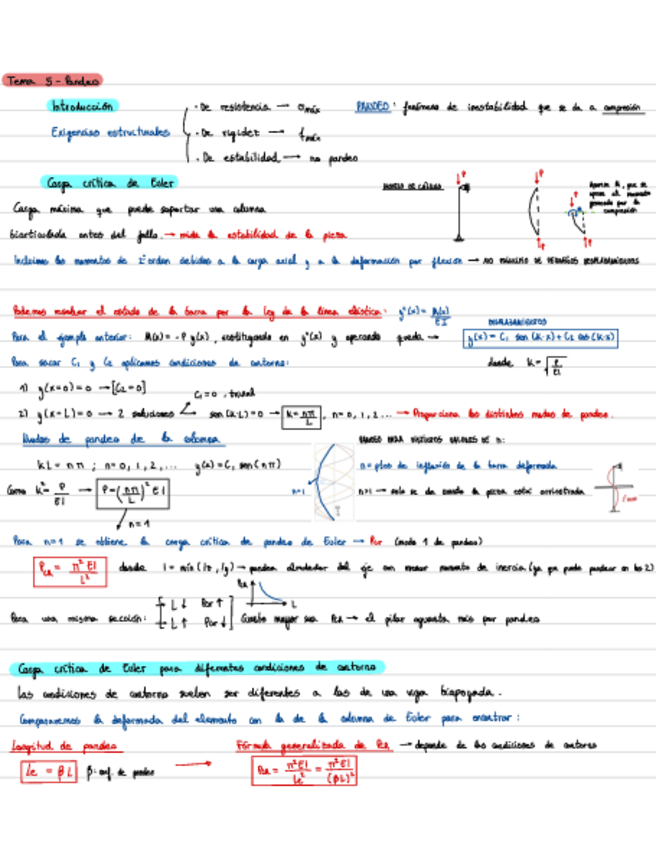 Tema 5 - Pandeo
Introducción
· De resistencia → σmáx
PANDEO: fenómeno de inestabilidad que se da a compresión
Exigencias estructurales
· De rigidez → fmáx
· De estabilidad → no pandeo
Carga crítica de Euler
Carga máxima que puede soportar una columna
biarticulada antes del fallo → mide la estabilidad de la pieza
Incluimos los momentos de 2º orden debidos a la carga axial y a la deformación por flexión → NO PRINCIPIO DE PEQUEÑOS DESPLAZAMIENTOS
Podemos resolver el estado de la barra por la ley de la línea elástica: y''(x) = M(x)/EI
DESPLAZAMIENTOS
Para el ejemplo anterior: M(x) = -P y(x), sustituyendo en y''(x) y operando queda → y(x) = C₁ sen(k·x) + C₂ cos(k·x)
Para sacar C₁ y C₂ aplicamos condiciones de contorno: donde k = √(P/EI)
1) y(x=0) = 0 → [C₂=0]
C₁=0, trivial
2) y(x=L) = 0 → 2 soluciones sen(k·L) = 0 → k = nπ/L, n = 0, 1, 2... → Proporciona los distintos modos de pandeo.
Modos de pandeo de la columna
PANDEO PARA DISTINTOS VALORES DE n:
kL = nπ ; n = 0, 1, 2, ... y(x) = C₁ sen(nπ)
n = ptos de inflexión de la barra deformada
Como k² = P/EI → P = (nπ/L)² EI
n=1
n>1 → solo se da cuando la pieza está arriostrada
n=1
Para n=1 se obtiene la carga crítica de pandeo de Euler → Pcr (modo 1 de pandeo)
Pcr = π² EI/L² donde I = mín(Iz, Iy) → pandea alrededor del eje con menor momento de inercia (ya que puede pandear en los 2)
Pcr
L
Para una misma sección: L↓ Pcr↑
L↑ Pcr↓
Cuanto mayor sea Pcr → el pilar aguanta más por pandeo
Carga crítica de Euler para diferentes condiciones de contorno
Las condiciones de contorno suelen ser diferentes a las de una viga biapoyada.
Compararemos la deformada del elemento con la de la columna de Euler para encontrar:
Longitud de pandeo
Fórmula generalizada de Pcr → depende de las condiciones de contorno
Le = βL β: coef. de pandeo → Pcr = π² EI/Le² = π² EI/(βL)²